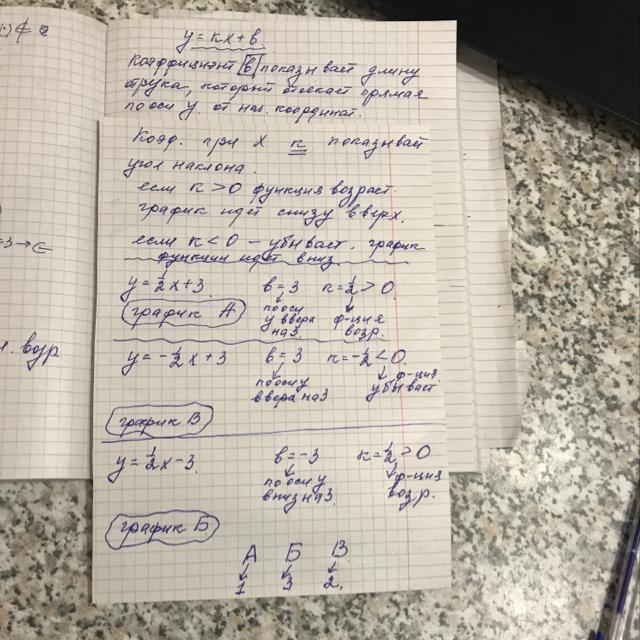 y = кx + в
Коэффициент |в| показывает длину
отрезка, который отсекает прямая
по оси y от нач. координат.
Коэф. при x к показывает
угол наклона.
если к > 0 функция возраст.
график идёт снизу вверх.
если к < 0 – убывает. график
функции идёт вниз
y = 1/2 x + 3 в = 3 к = 1/2 > 0
график А
по оси ф-ция
y вверх возр.
на 3
y = -1/2 x + 3 в = 3 к = -1/2 < 0
по оси y ф-ция
вверх на 3 убывает
график В
y = 1/2 x - 3. в = -3 к = 1/2 > 0
по оси y ф-ция
вниз на 3 возр.
график Б
А Б В
1 3 2.
возр